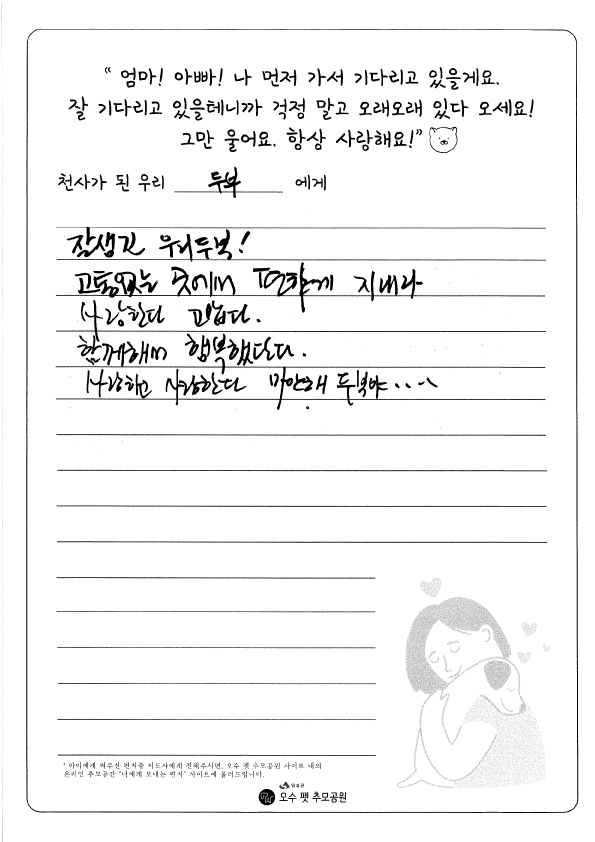 “ 엄마! 아빠! 나 먼저 가서 기다리고 있을게요.
잘 기다리고 있을테니까 걱정 말고 오래오래 있다 오세요!
그만 울어요. 항상 사랑해요!”
천사가 된 우리 두부 에게
잘생긴 우리두부!
고통없는 곳에서 편하게 지내라
사랑한다 고맙다.
함께해서 행복했단다.
사랑하고 사랑한다 미안해 두부야....
* 아이에게 써주신 편지를 지도사에게 전해주시면, 오수 펫 추모공원 사이트 내의
온라인 추모공간 "너에게 보내는 편지" 사이트에 올려드립니다.
임실군
오수 펫 추모공원